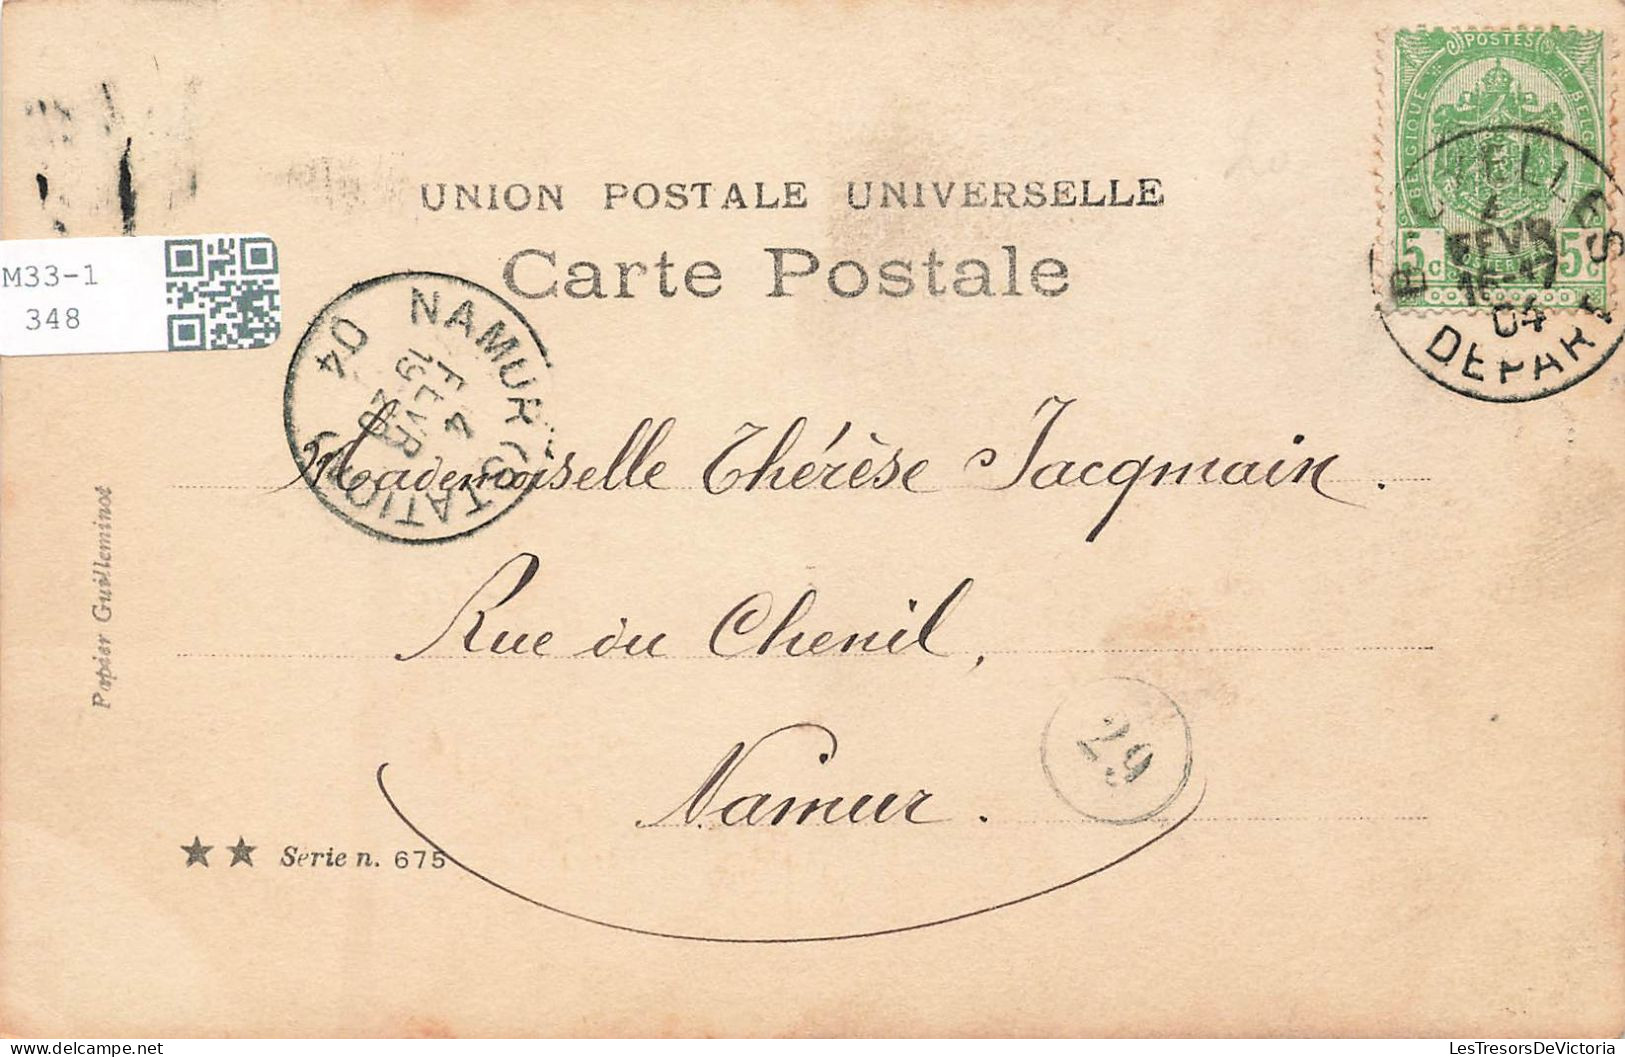 POSTES
BELGIQUE
5c 5c
FEVR
16-17
04
DEPART
UNION POSTALE UNIVERSELLE
Carte Postale
M33-1
348
NAMUR (STATION)
4
FEVR
19-20
04
Mademoiselle Thérèse Jacqmain.
Rue du Chenil,
Namur.
29
Papier Guilleminot
★★ Serie n. 675
delcampe.net
LesTresorsDeVictoria